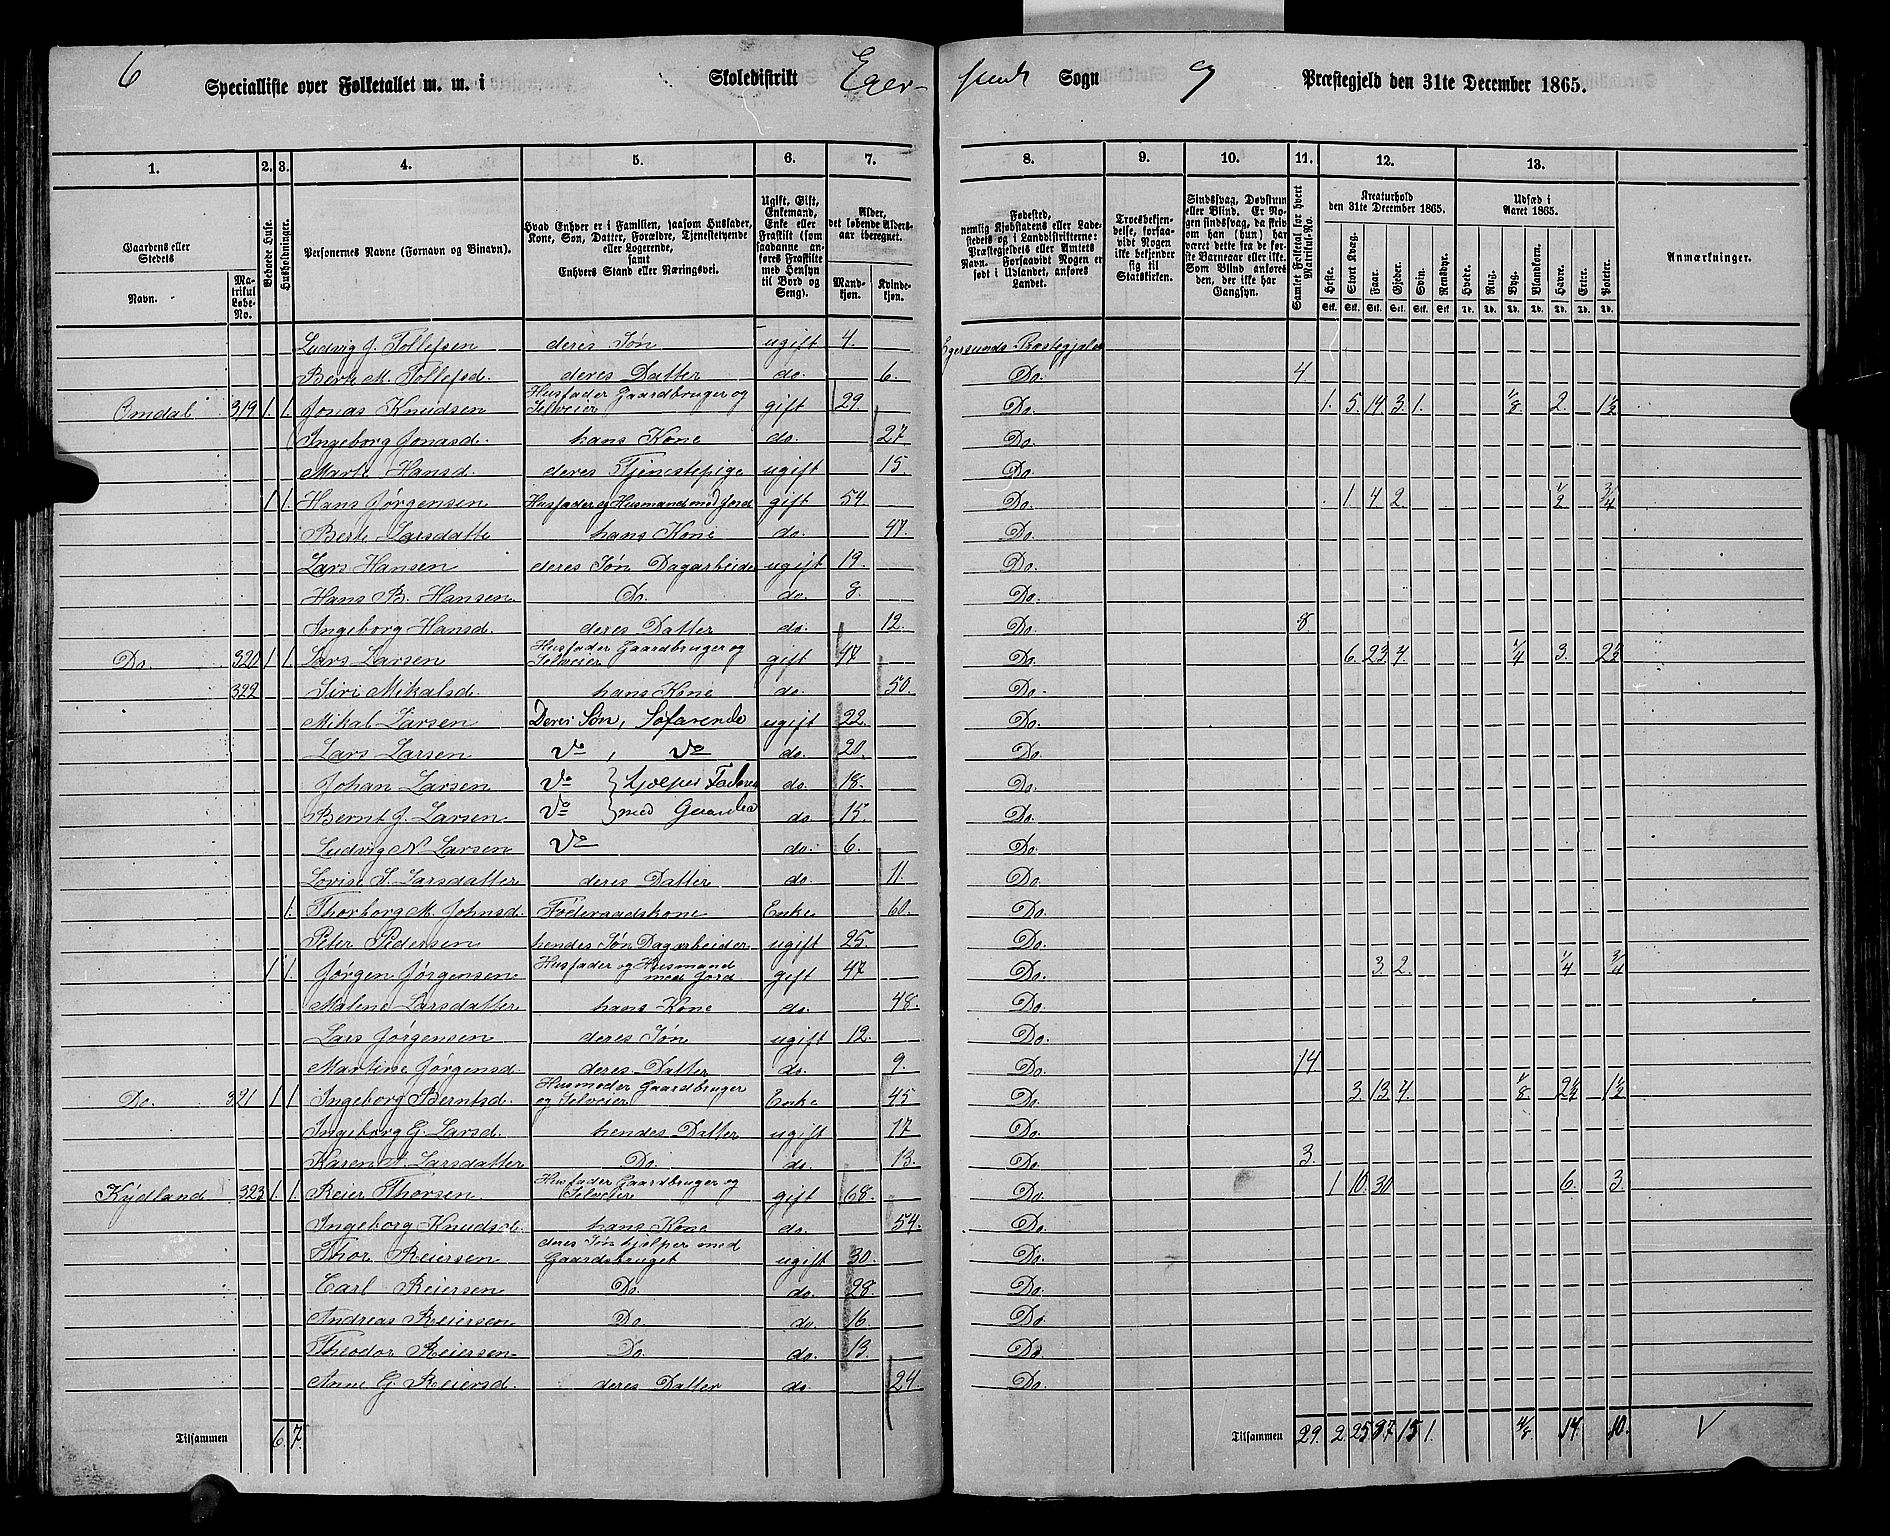 6 Specialliste over Folketallet m. m. i Skoledistrikt Eger- sunds Sogn og Præstegjeld den 31te December 1865.
1. 2. 3. 4. 5. 6. 7. 8. 9. 10. 11. 12. 13.
Gaardens eller Stedets
Navn.
Matrikul Løbe-No.
Beboede Huse.
Husholdninger.
Personernes Navne (Fornavn og Binavn).
Hvad Enhver er i Familien, saasom Husfader, Kone, Søn, Datter, Forældre, Tjenestetyende eller Logerende, samt Enhvers Stand eller Næringsvei.
Ugift, Gift, Enkemand, Enke eller Fraskilt (som saadanne anføres Fraskilte med Hensyn til Bord og Seng).
Alder, det løbende Aldersaar iberegnet.
Mandkjøn. Kvindekjøn.
Fødested, nemlig Kjøbstadens eller Ladestedets og i Landdistrikterne: Præstegjeldets eller Amtets Navn. Forsaavidt Nogen er født i Udlandet, anføres Landet.
Troesbekjendelse, forsaavidt Nogen ikke bekjender sig til Statskirken.
Sindssvag, Døvstum eller Blind. Er Nogen sindssvag, da skrives om han (hun) har været dette fra de første Barneaar eller ikke. Som Blind anføres den, der ikke har Gangsyn.
Samlet Folketal for hvert Matrikul-No.
Kreaturhold den 31te December 1865.
Heste. Stort Kvæg. Faar. Gjeder. Svin. Rensdyr.
Stk. Stk. Stk. Stk. Stk. Stk.
Udsæd i Aaret 1865.
Hvede. Rug. Byg. Blandkorn. Havre. Erter. Poteter.
Td. Td. Td. Td. Td. Td. Td.
Anmærkninger.
Ludvig J. Tollefsen deres Søn ugift 4. Egersunds Præstegjeld
Berte M. Tollefsd. deres Datter do. 6. Do. 4
Omdal 319 1. 1. Jonas Knudsen Husfader Gaardbruger og Selveier gift 29. Do. 1. 5. 14. 3. 1. 1/8 2. 1 1/2
Ingeborg Jonasd. hans Kone do. 27 Do.
Marte Hansd. deres Tjenestepige ugift 15. Do.
1 1. Hans Jørgensen Husfader og Husmand med Jord gift 54. Do. 1. 4. 2. 1/2 3/4
Berte Larsdatte hans Kone do. 47. Do.
Lars Hansen deres Søn Dagarbeider ugift 19. Do.
Hans B. Hansen Do. do. 8. Do.
Ingeborg Hansd. deres Datter do. 12. Do. 8.
Do. 320 1 1 Lars Larsen Husfader Gaardbruger og Selveier gift 47 Do. 6. 23. 4. 1/4 3. 2 1/2
322 Siri Mikalsd. hans Kone do. 50. Do.
Mikal Larsen Deres Søn, Søfarende ugift 22. Do.
Lars Larsen Do , Do do. 20. Do.
Johan Larsen Do } hjælper Faderen do. 18. Do.
Bernt J. Larsen Do } med Gaarden do 15. Do.
Ludvig N. Larsen Do do. 6. Do.
Lovise S. Larsdatter deres Datter do. 11 Do.
1. Thorborg M. Johnsd. Føderaadskone Enke 60. Do.
Peter Pedersen hendes Søn Dagarbeider ugift 25. Do.
1 1. Jørgen Jørgensen Husfader og Husmand med Jord gift 47 Do. 3. 2. 1/4 3/4
Malene Larsdatter hans Kone do. 48. Do.
Lars Jørgensen deres Søn ugift 12. Do.
Martine Jørgensd. deres Datter do. 9. Do. 14
Do. 321 1 1 Ingeborg Berntsd. Husmoder Gaardbruger og Selveier Enke 45 Do. 3. 13. 4. 1/8 2 1/4 1 1/2
Ingeborg G. Larsd. hendes Datter ugift 17 Do.
Karen A. Larsdatter Do. do. 13. Do. 3.
Kydland 323 1. 1. Reier Thorsen Husfader Gaardbruger og Selveier gift 68. Do. 1 10. 30 6. 3.
Ingeborg Knudsd. hans Kone do. 54. Do.
Thor Reiersen deres Søn hjelper med Gaardsbruget ugift 30. Do.
Carl Reiersen Do. do. 28. Do.
Andreas Reiersen Do. do. 16. Do.
Theodor Reiersen Do. do. 13. Do.
Anne G. Reiersd. deres Datter do. 24. Do.
Tilsammen 6. 7. Tilsammen 29. 2. 25 87 15 1. 4/8 14. 10.